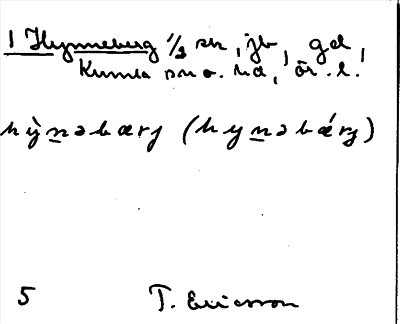 1 Hynneberg 1/2 sn, jb, gd,
Kumla sn o. hd, ör. l.
hỳnəbærj (hynəbǽrj)
5 T. Ericsson